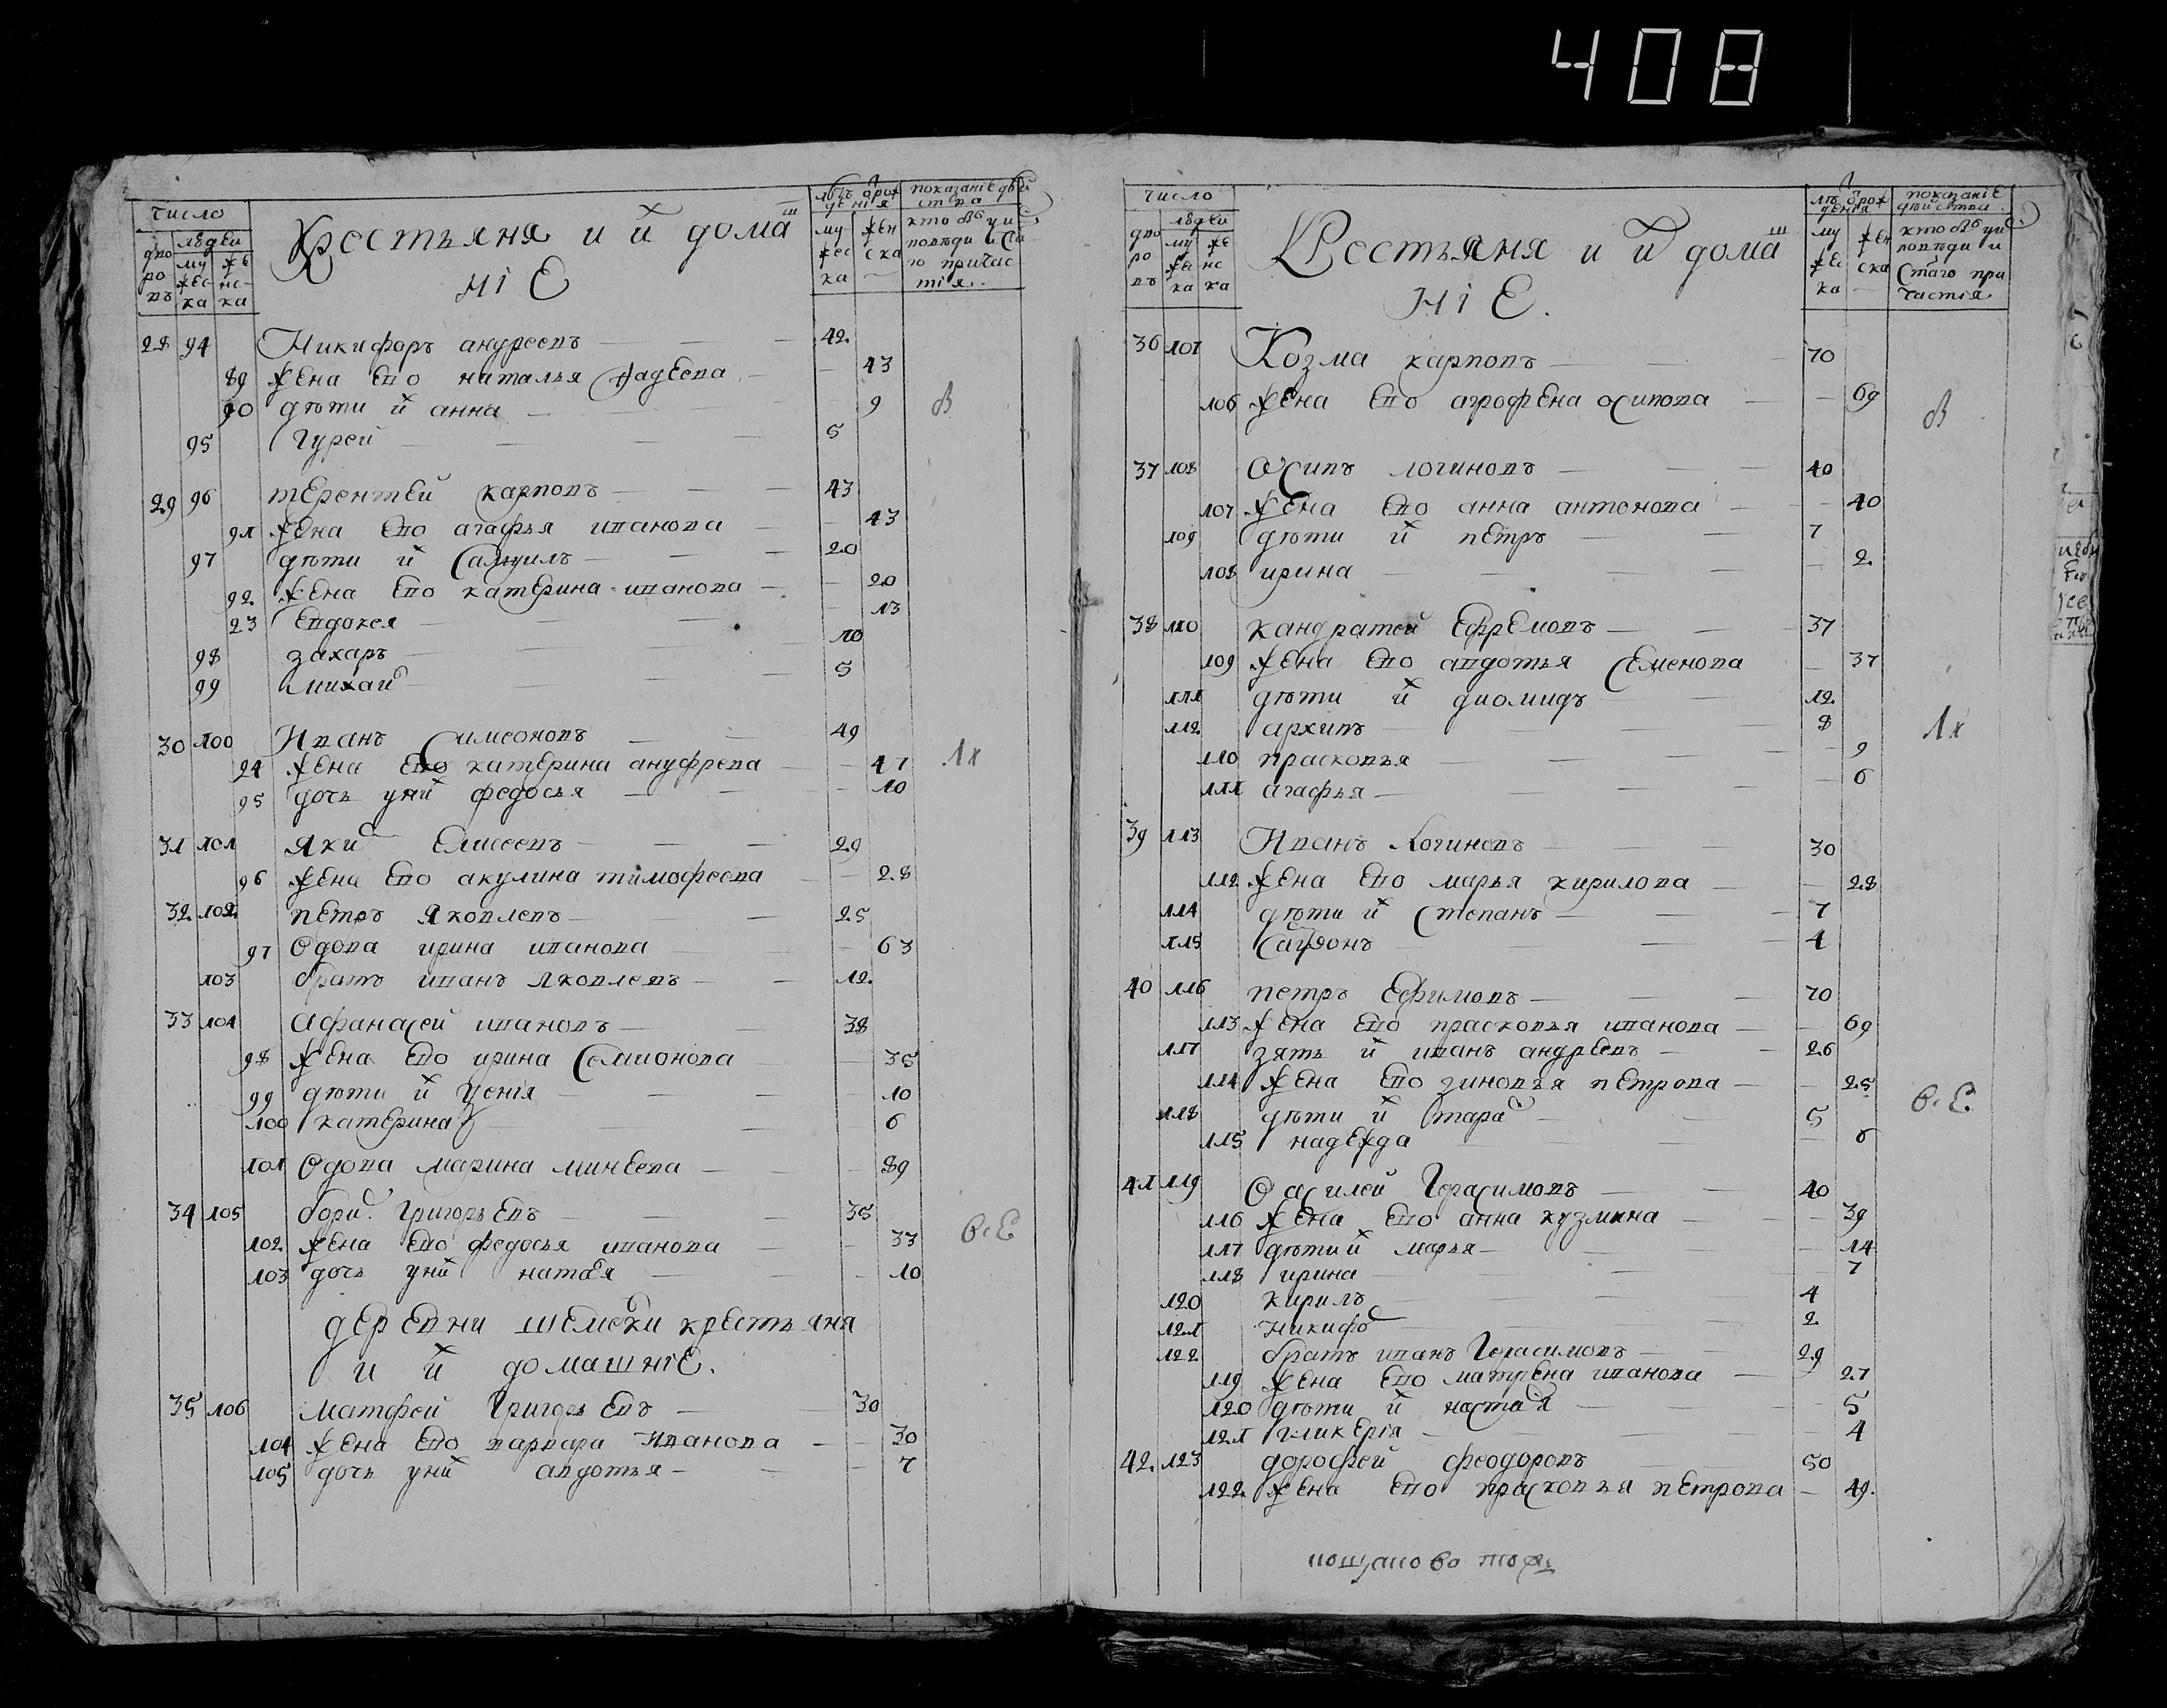 408
число
людеи
дво ро въ
му жес ка
же нс ка
Крестьяня и иˣ дома ш
ніе
лѣтъ ѿ рож денія
му жес ка
жен ска
показаніе дѣй ства
кто въ у испо вѣди и ста го причас тія
28 94 Никифоръ андреевъ — 42
89 жена ево наталья фадеева — 43
90 дѣти иˣ анна — 9
95 Гурей — 5
29 96 терентей карповъ — 43
91 жена ево агафья иванова — 43
97 дѣти иˣ Самуилъ — 20
92 жена ево катерина иванова — 20
23 Евдокея — 13
98 захаръ — 10
99 михаи — 5
30 100 Иванъ Симеоновъ — 49
94 жена ево катерина ануфрева — 47
95 дочь у ниˣ федосья — 10
31 101 Яки Елисеевъ — 29
96 жена ево акулина тимофеева — 28
32 102 петръ Яковлевъ — 25
97 вдова ирина иванова — 63
103 братъ иванъ Яковлевъ — 12
33 104 афанасей ивановъ — 38
98 жена ево ирина Семионова — 35
99 дѣти иˣ — 10
100 катерина — 6
101 вдова марина минеева — 89
34 105 бори Григорьевъ — 35
102 жена ево федосья иванова — 33
103 дочь у ниˣ натая — 10
в. Е
деревни шемеки крестьяня
и иˣ домашніе.
35 106 матфей Григорьевъ — 30
104 жена ево варвара Иванова — 30
105 дочь у ниˣ авдотья — 7
число
людеи
дво ро въ
му жес ка
же нс ка
Крестьяня и иˣ дома ш
ніе.
лѣтъ ѿ рож денія
му жес ка
жен ска
показаніе дѣйства
кто въ у испо вѣди и стаго при частія
36 107 Козма карповъ — 70
106 жена ево агрофена осипова — 69
37 108 Осипъ логиновъ — 40
107 жена ево анна антонова — 40
109 дѣти иˣ петръ — 7
108 ирина — 2
38 110 кандратей Ефремовъ — 37
109 жена ево авдотья Семенова — 37
111 дѣти иˣ диомидъ — 12
112 архипъ — 8
110 прасковья — 9
111 агафья — 6
39 113 Иванъ Логиновъ — 30
112 жена ево марья кирилова — 28
114 дѣти иˣ Степанъ — 7
115 — 4
40 116 петръ Ефимовъ — 70
113 жена ево прасковья иванова — 69
117 зять иˣ иванъ андреевъ — 26
114 жена ево зиновья петрова — 25
118 дѣти иˣ тара — 5
115 надежда — 6
в. Е
41 119 Василей Герасимовъ — 40
116 жена ево анна кузмина — 39
117 дѣти иˣ марья — 14
118 ирина — 7
120 кирилъ — 4
121 никифо — 2
122 братъ иванъ Герасимовъ — 29
119 жена ево матрена иванова — 27
120 дѣти иˣ настая — 5
121 гликерія — 4
42 123 дорофей феодоровъ — 50
122 жена ево прасковья петрова — 49